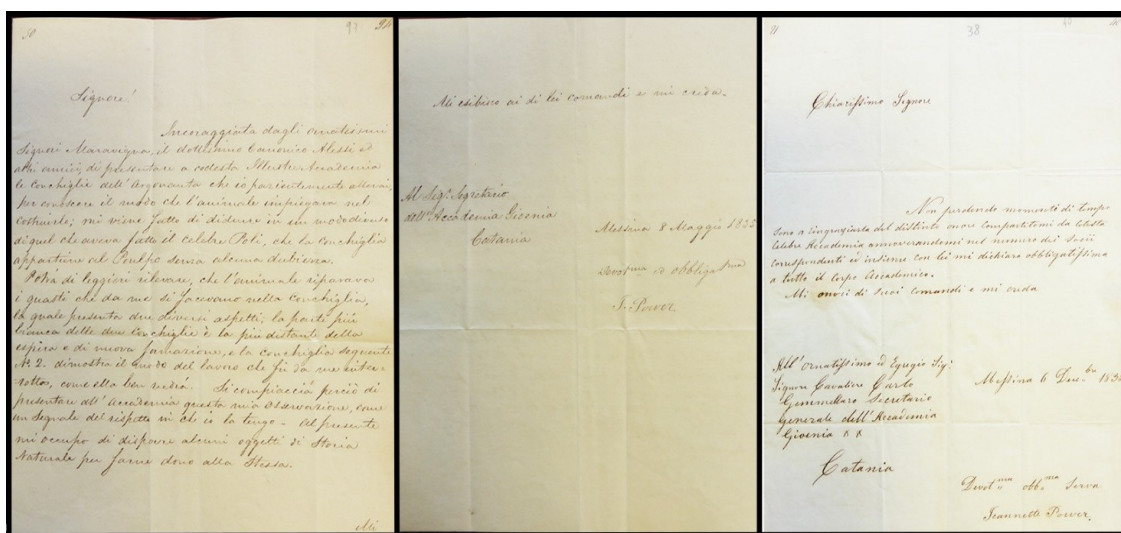 90
97
94
Signore!
Incoraggiata dagli ornatissimi
Signori Maravigna, il dottissimo Canonico Alessi ed
altri amici, di presentare a codesta Illustre Accademia
le Conchiglie dell'Argonauta che io pazientemente allevai,
per conoscere il modo che l'animale impiegava nel
costruirle; mi viene fatto di didurre in un modo diverso
di quel che aveva fatto il celebre Poli, che la Conchiglia
appartiene al Poulpo senza alcuna dubiezza.
Potrà di leggieri rilevare, che l'animale riparava
i guasti che da me si facevano nella Conchiglia,
la quale presenta due diversi aspetti; la parte più
bianca delle due Conchiglie è la più distante della
espira e di nuova formazione, e la conchiglia seguente
Nº 2. dimostra il modo del lavoro che fù da me inter-
rotto, come ella ben vedrà. Si compiaccia perciò di
presentare all'Accademia questa mia Osservazione, come
un segnale del rispetto in chi io la tengo. Al presente
mi occupo di disporre alcuni oggetti di Storia
Naturale per farne dono alla Stessa.
Mi
Mi esibisco ai di lei comandi e mi creda.
Al Sigr. Segretario
dell'Accademia Gioenia
Catania
Messina 8 Maggio 1835
Devotma ed obbligatma
J. Power.
38
Chiarissimo Signore
Non perdendo momenti di tempo
sono a ringraziarla del distinto onore compartitomi da cotesta
Celebre Accademia annoverandomi nel numero dei Socii
Corrispondenti ed insieme con lei mi dichiaro obbligatissima
a tutto il corpo Accademico.
Mi onori di suoi comandi e mi creda
All'Ornatissimo ed Egregio Sigr
Signor Cavaliere Carlo
Gemmellaro Secretario
Generale dell'Accademia
Gioenia
Catania
Messina 6
Devotma obbma Serva
Jeannette Power.